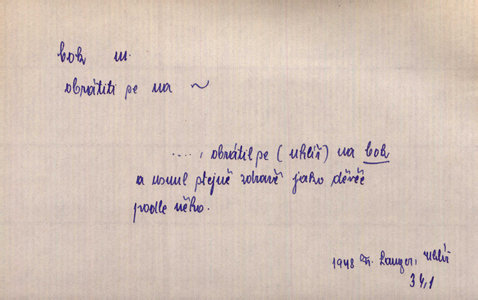 bok m.
obrátiti se na ~
...., obrátil se (uhlíř) na bok
a usnul stejně zdravě jako děvče
podle něho.
1948 Fr. Langer, Uhlíř
34,1